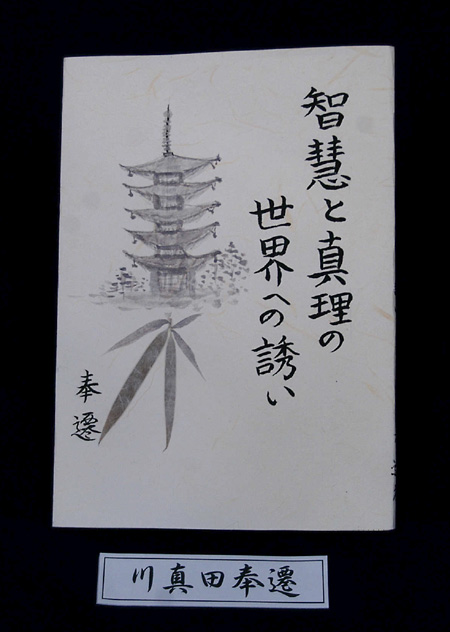 智慧と真理の
世界への誘い
奉遷
川真田奉遷